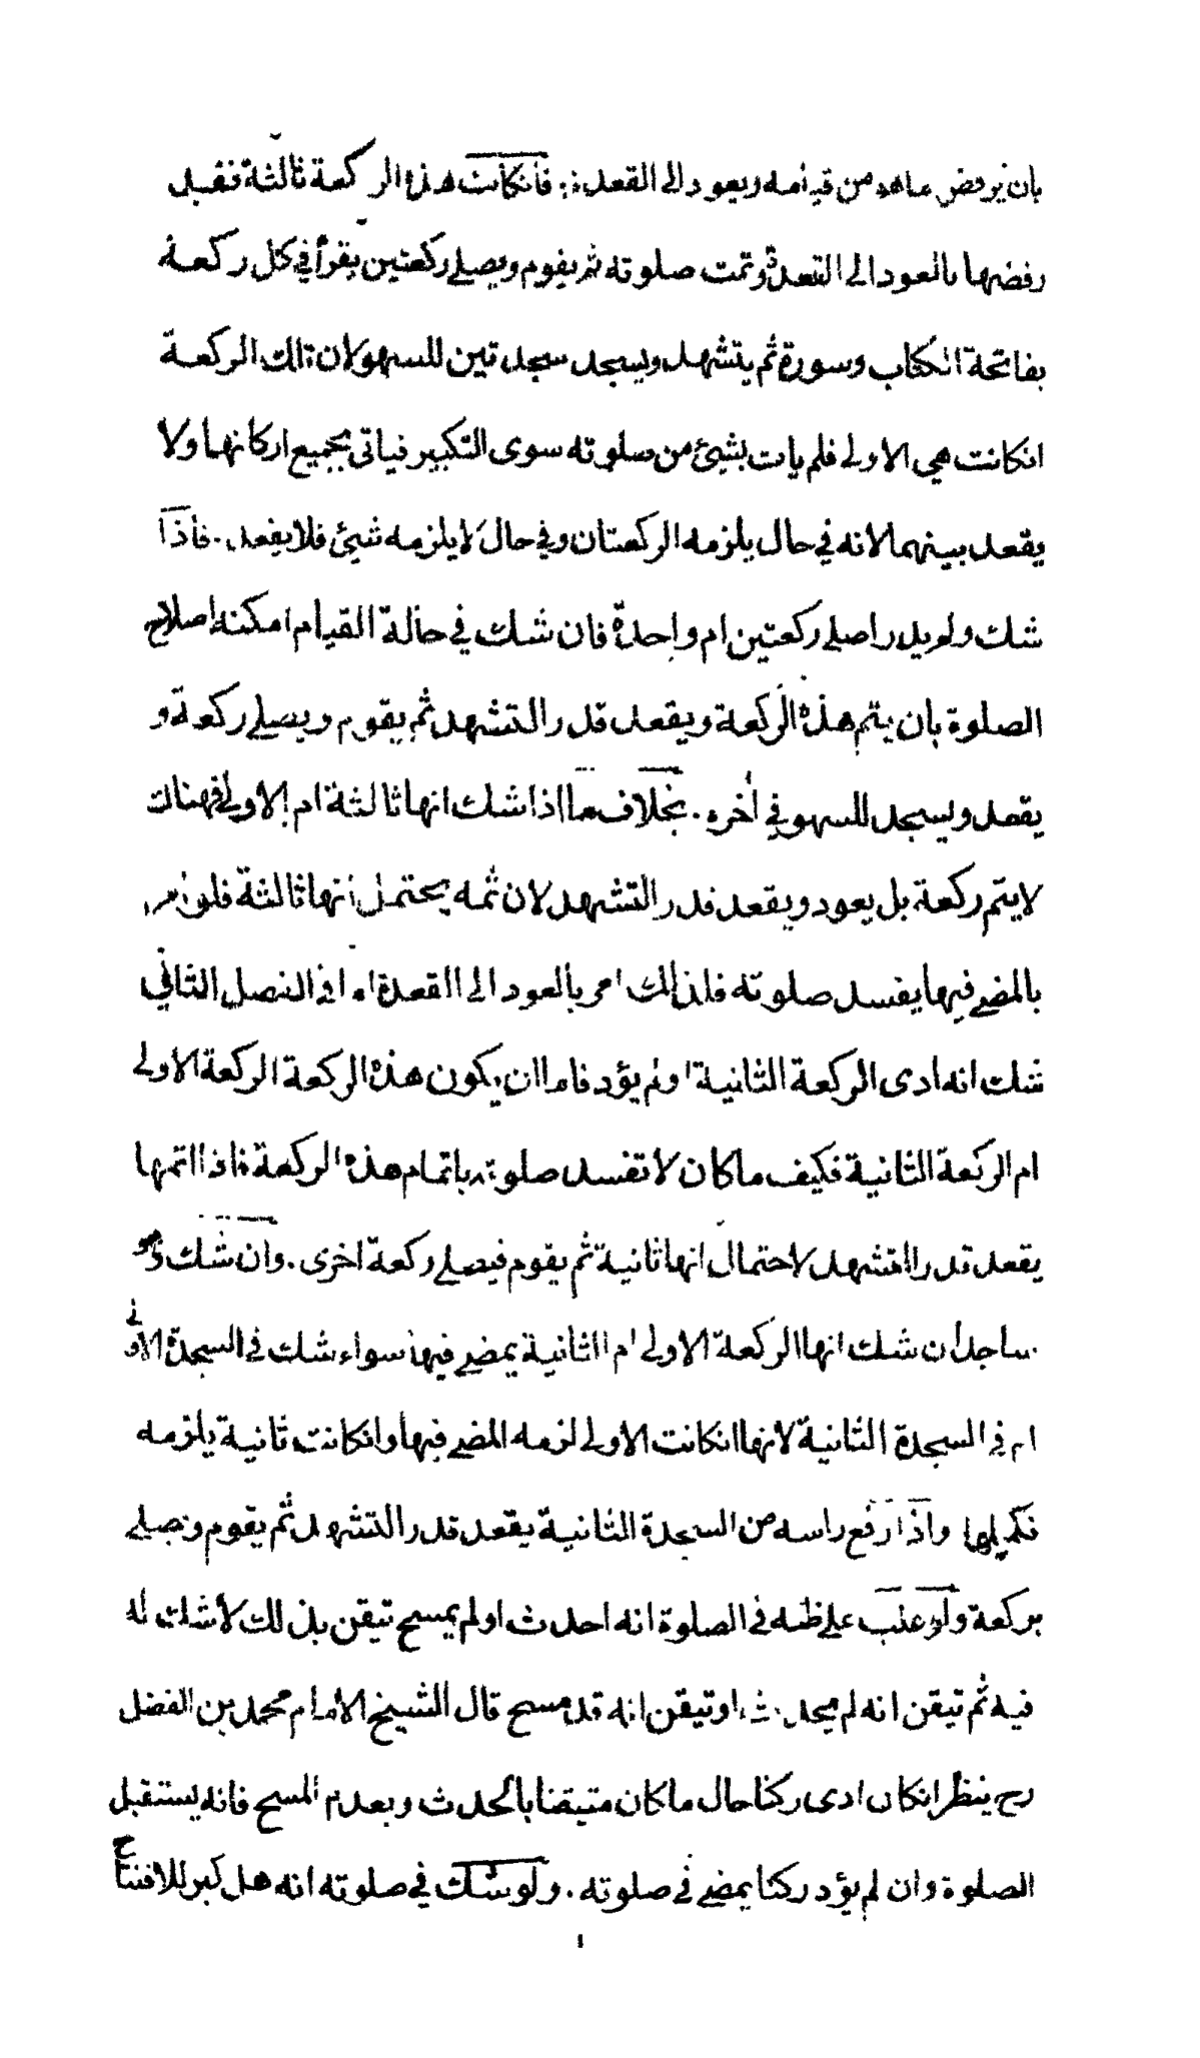 بان يرفض ماهو من قيامه ويعود الى القعدة فانكانت هذه الركعة ثالثة فقبل
رفضها بالعود الى القعدة وتمت صلوته ثم يقوم ويصلے ركعتين يقرأ في كل ركعة
بفاتحة الكتاب وسورة ثم يتشهد ويسجد سجدتين للسهو لان تلك الركعة
انكانت هي الاولى فلم يات بشيئ من صلوته سوى التكبير فياتى بجميع اركانها ولا
يقعد بينهما لانه في حال يلزمه الركعتان وفي حال لا يلزمه شيئ فلا يفعد . فاذا
شك ولم يدر اصلے ركعتين ام واحدة فان شك في حالة القيام امكنه اصلاح
الصلوة بان يتم هذه الركعة ويقعد قدر التشهد ثم يقوم ويصلے ركعة و
يقعد ويسجد للسهو في أخره . بخلاف ما اذا شك انها ثالثة ام الاولى فهناك
لا يتم ركعة بل يعود ويقعد قدر التشهد لان ثمه يحتمل انها ثالثة فلو
بالمضے فيها يفسد صلوته فلذلك امر بالعود الى القعدة اما في الفصل الثاني
شك انه ادى الركعة الثانية او لم يؤد فاما ان يكون هذه الركعة الركعة الاولى
ام الركعة الثانية فكيف ما كان لا تفسد صلوته باتمام هذه الركعة فاذا اتمها
يقعد قدر التشهد لاحتمال انها ثانية ثم يقوم فيصلے ركعة اخرى . وان شك وهو
ساجد ان شك انها الركعة الاولى ام الثانية يمضے فيها سواء شك في السجدة الاولى
ام في السجدة الثانية لانها انكانت الاولى لزمه المضے فيها وانكانت ثانية يلزمه
تكميلها واذا رفع راسه من السجدة الثانية يقعد قدر التشهد ثم يقوم ويصلے
بركعة ولو غلب على ظنه في الصلوة انه احدث اولم يمسح تيقن بذلك لا شك له
فيه ثم تيقن انه لم يحدث او تيقن انه قد مسح قال الشيخ الامام محمد بن الفضل
رح ينظر انكان ادى ركنا حال ما كان متيقنا بالحدث وبعدم المسح فانه يستقبل
الصلوة وان لم يؤد ركنا يمضے في صلوته . ولو شك في صلوته انه هل كبر للافتتاح